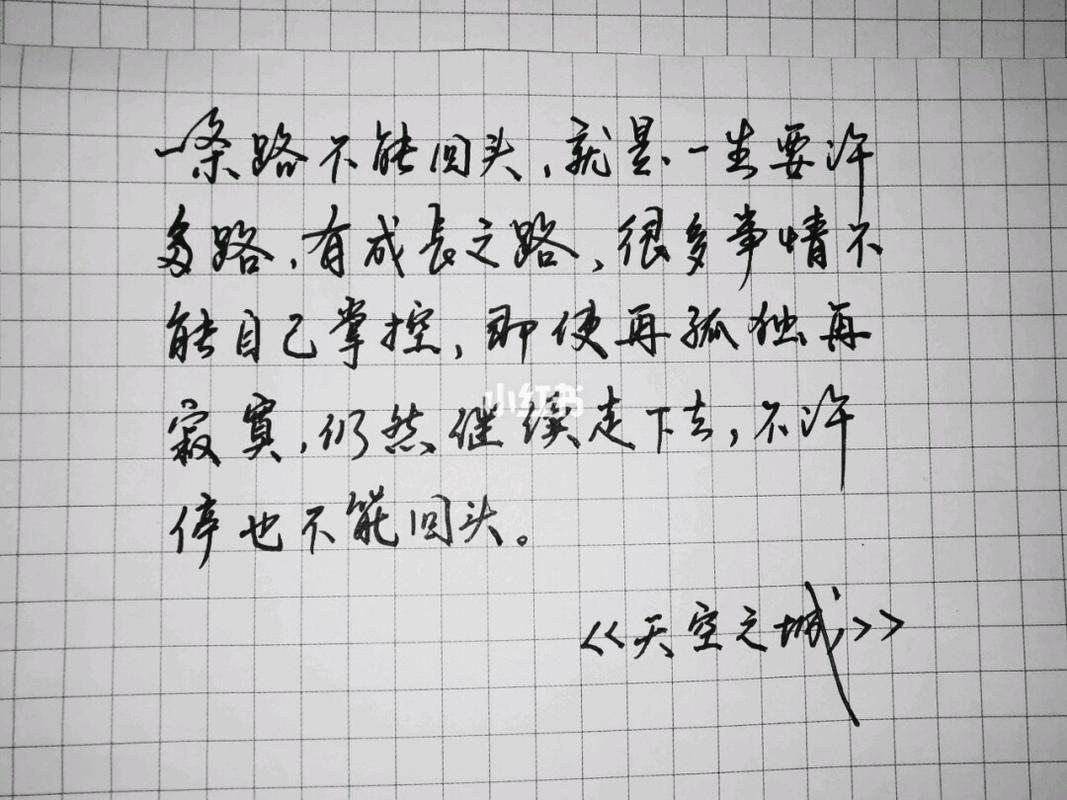 一条路不能回头，就是一生要许
多路，有成长之路，很多事情不
能自己掌控，即使再孤独再
寂寞，仍然继续走下去，不许
停也不能回头。
《天空之城》
小红书